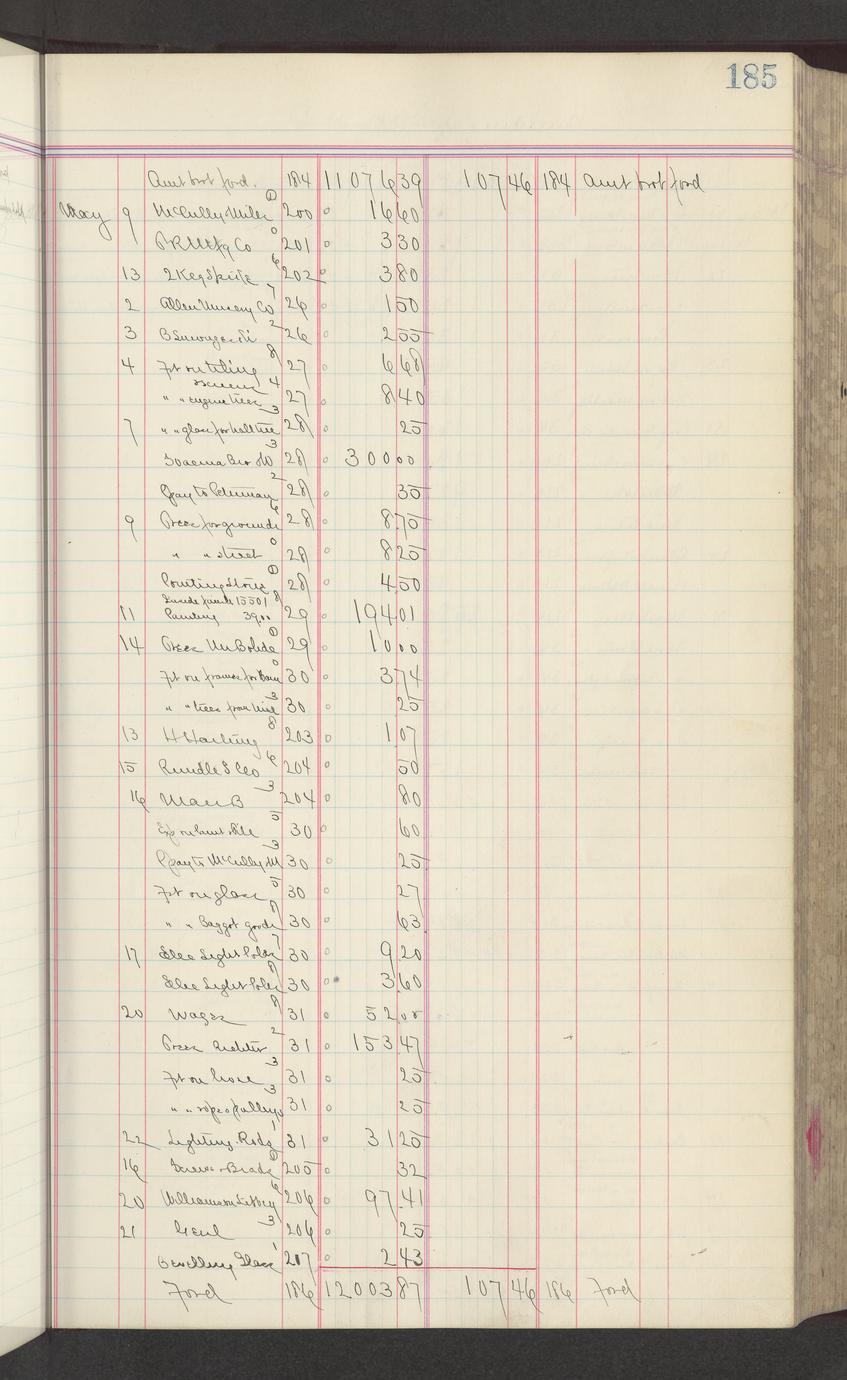 185
Amt brot ford. 184 11076 39 107 46 184 Amt brot ford
May 9 McCully Miles 200 16 60
P.R. Mfg Co 201 3 30
13 2 Kegs 202 3 80
2 Allen Nursery Co 26 1 50
3 B 26 2 55
4 Frt on tiling 27 6 68
" " trees 27 8 40
7 " " glass for 28 25
Bro 28 300 00
Dray to 28 35
9 Trees for grounds 28 8 75
" " street 28 8 25
Stone 28 4 50
155 01
11 Painting 39 00 29 194 01
14 29 10 00
Frt on frames for Barn 30 3 74
" " trees from 30 25
13 H Harling 203 1 07
15 Rundle S Co 204 50
16 B 204 80
30 60
Dray to McCully M 30 25
Frt on glass 30 27
" " Baggot goods 30 63
17 Elec Light Poles 30 9 20
Elec Light Poles 30 3 60
20 Wages 31 52 00
31 153 47
Frt on hose 31 25
" " rope & pulleys 31 25
22 Lighting Rods 31 31 25
16 Screws & Brads 205 32
20 Williamson Libbey 206 97 41
21 206 25
Glass 207 2 43
Ford 186 12003 87 107 46 186 Ford